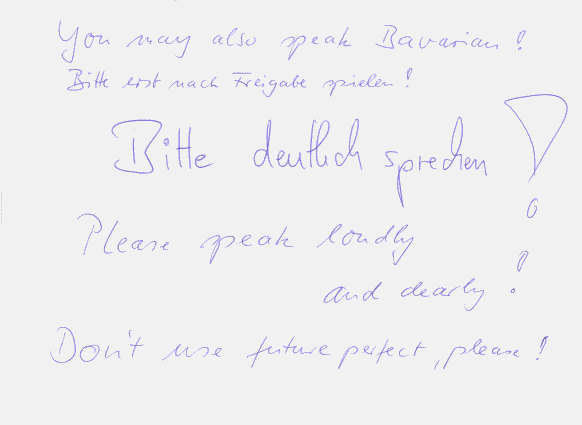 You may also speak Bavarian!
Bitte erst nach Freigabe spielen!
Bitte deutlich sprechen!
Please speak loudly
and clearly!
Don't use future perfect, please!